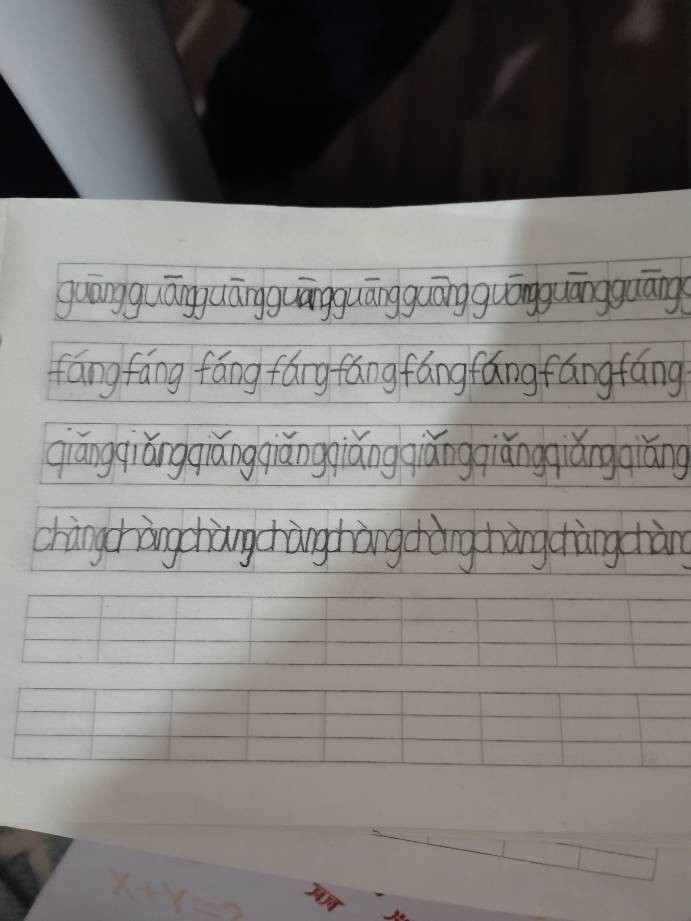 guāng guāng guāng guāng guāng guāng guāng guāng guāng
fáng fáng fáng fáng fáng fáng fáng fáng fáng
qiǎng qiǎng qiǎng qiǎng qiǎng qiǎng qiǎng qiǎng qiǎng
chàng chàng chàng chàng chàng chàng chàng chàng chàng